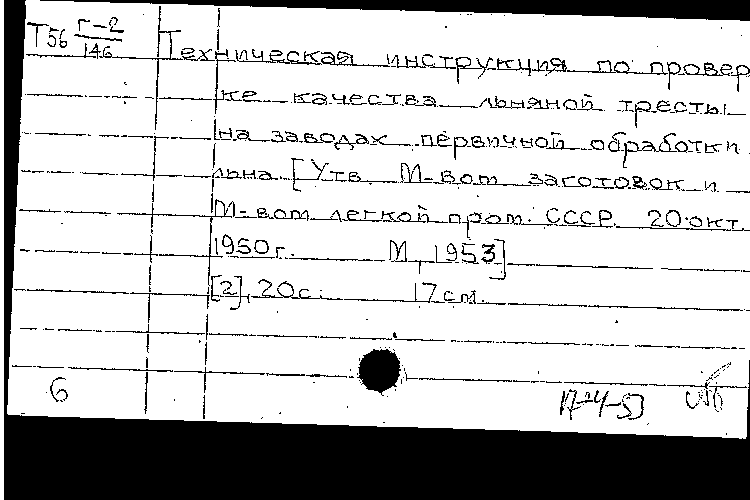 Т56 г-2/146 Техническая инструкция по провер
ке качества льняной тресты
на заводах первичной обработки
льна [Утв. М-вом заготовок и
М-вом легкой пром. СССР. 20.окт.
1950г. М, 1953]
[2], 20с. 17см.
6
17-24-53